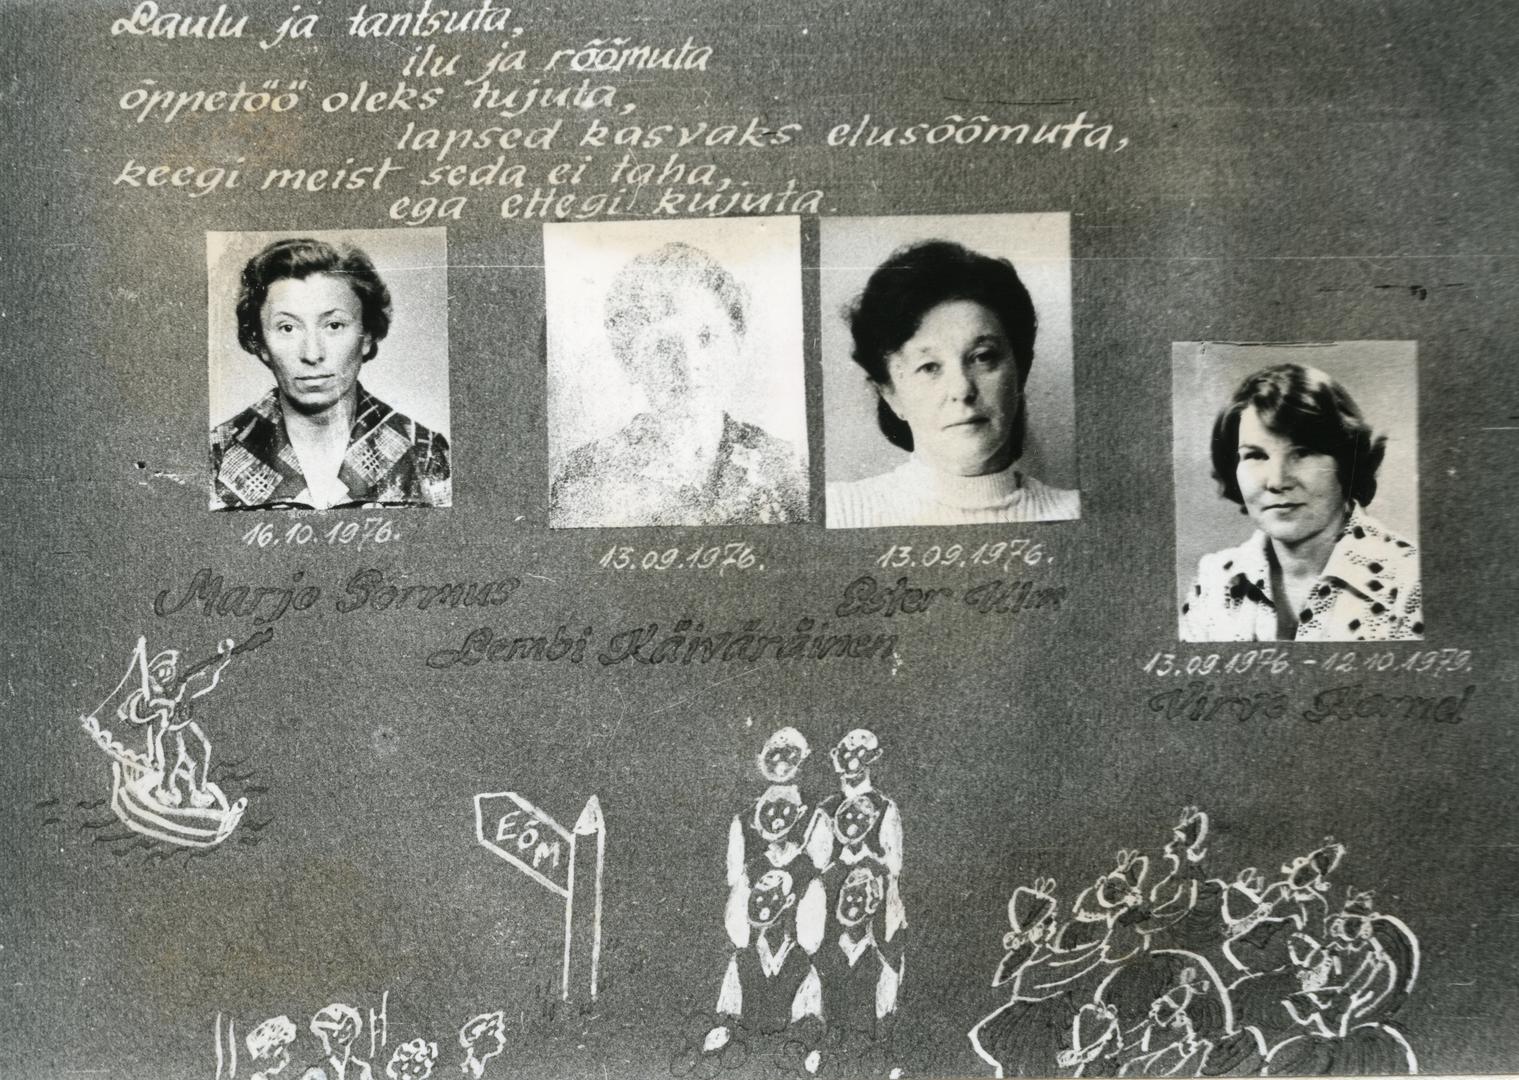 Laulu ja tantsuta,
ilu ja rõõmuta
õppetöö oleks tujuta,
lapsed kasvaks elusõõmuta,
keegi meist seda ei taha,
ega ettegi kujuta.
16.10.1976.
13.09.1976.
13.09.1976.
Marje Sormus
Ester Ulm
Lembi Käiväräinen
13.09.1976. - 12.10.1979.
Virve
EÕM